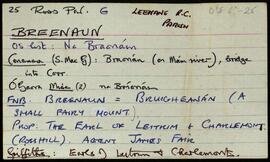 25 Ross Pn. 6 LEENANE R.C. PARISH
BREENAUN
OS List: Na Braonáin
(S. Mac) : Braonán (on Main river), bridge
into Corr.
Ó Gaora (2) na braonáin
FNB. BREENAUN = BRUIGHEANÁN (A
SMALL FAIRY MOUNT)
PROP: THE EARL OF LEITRIM & CHARLEMONT
(ROSSHILL). AGENT JAMES FAIR
Griffiths: Earls of Leitrim & Charlemont.